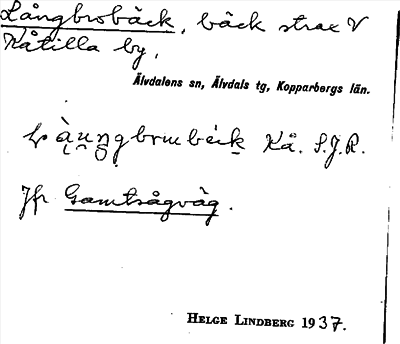 Långbrobäck, bäck strax V
Kåtilla by,
Älvdalens sn, Älvdals tg, Kopparbergs län.
Kå. S.J.R.
Jfr Gamtsågväg.
HELGE LINDBERG 1937.